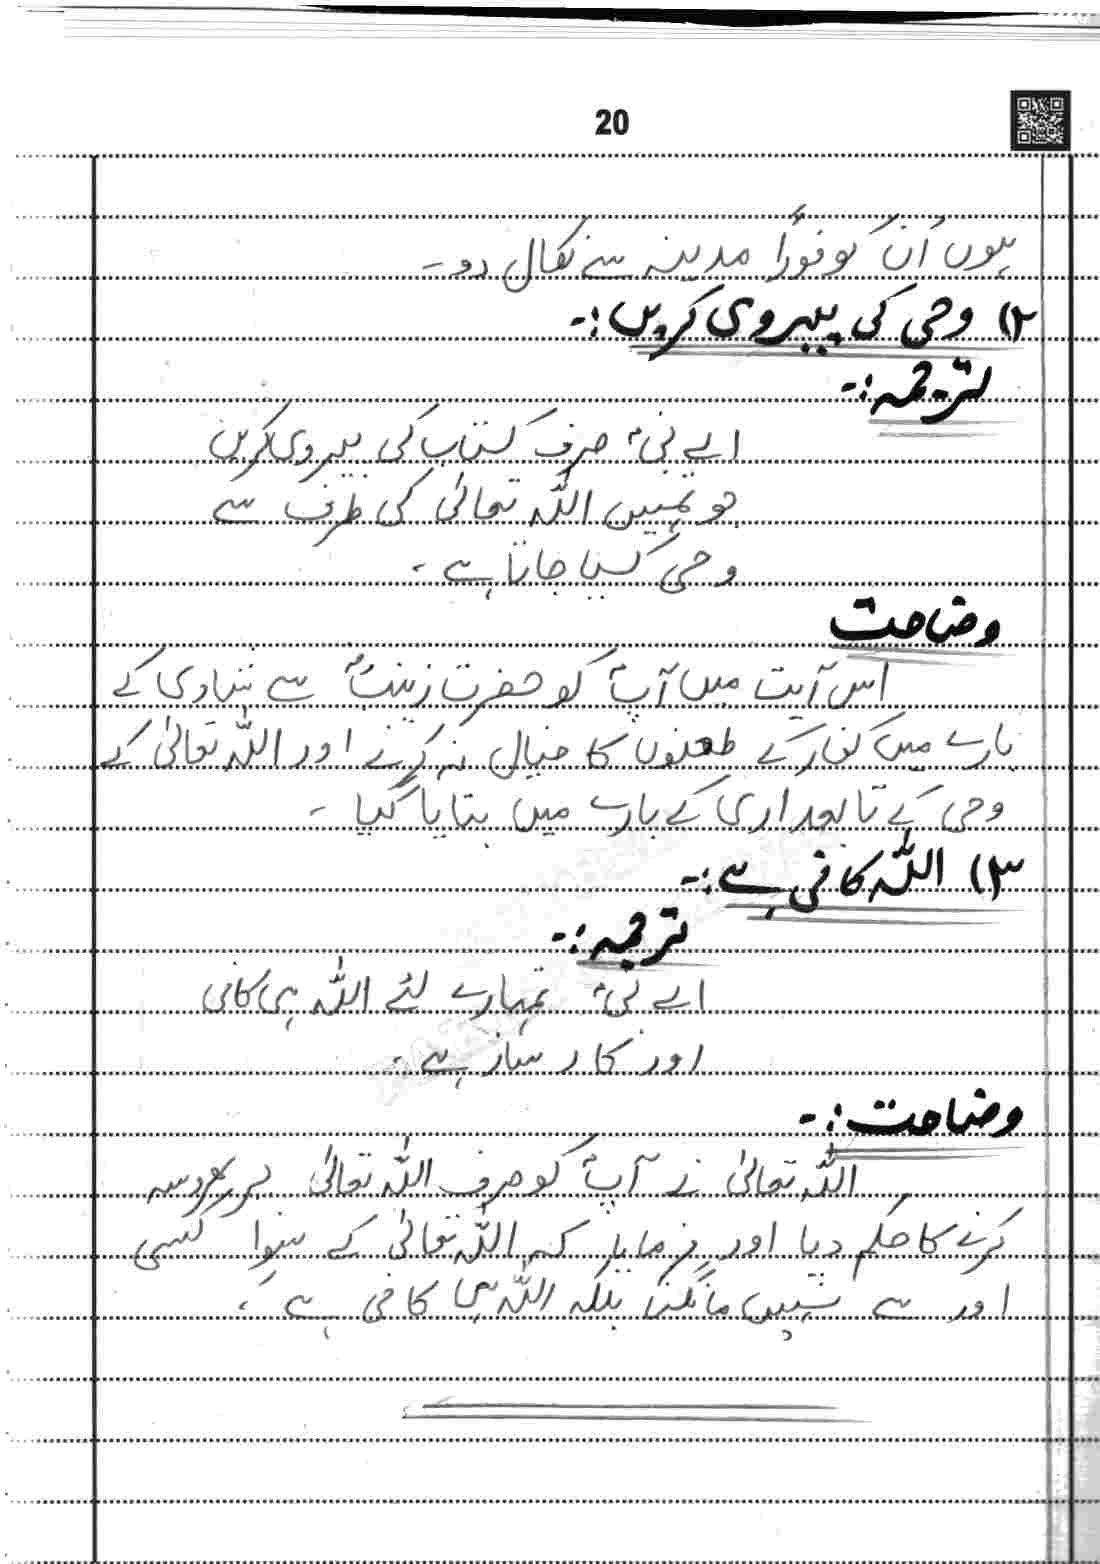 20
ہوں اُن کو فوراً مدینہ سے نکال دو۔
۲) وحی کی پیروی کریں:۔
ترجمہ:۔
اے نبیؐ صرف کتاب کی پیروی کریں
جو تمہیں اللہ تعالیٰ کی طرف سے
وحی کیا جاتا ہے۔
وضاحت
اس آیت میں آپؐ کو حضرت زینبؓ سے شادی کے
بارے میں کفار کے طعنوں کا خیال نہ کرنے اور اللہ تعالیٰ کے
وحی کے تابعداری کے بارے میں بتایا گیا۔
۳) اللہ کافی ہے:۔
ترجمہ:۔
اے نبیؐ تمہارے لئے اللہ ہی کافی
اور کارساز ہے۔
وضاحت:۔
اللہ تعالیٰ نے آپؐ کو صرف اللہ تعالیٰ پر بھروسہ
کرنے کا حکم دیا اور فرمایا کہ اللہ تعالیٰ کے سِوا کسی
اور سے نہیں مانگنا بلکہ اللہ ہی کافی ہے۔